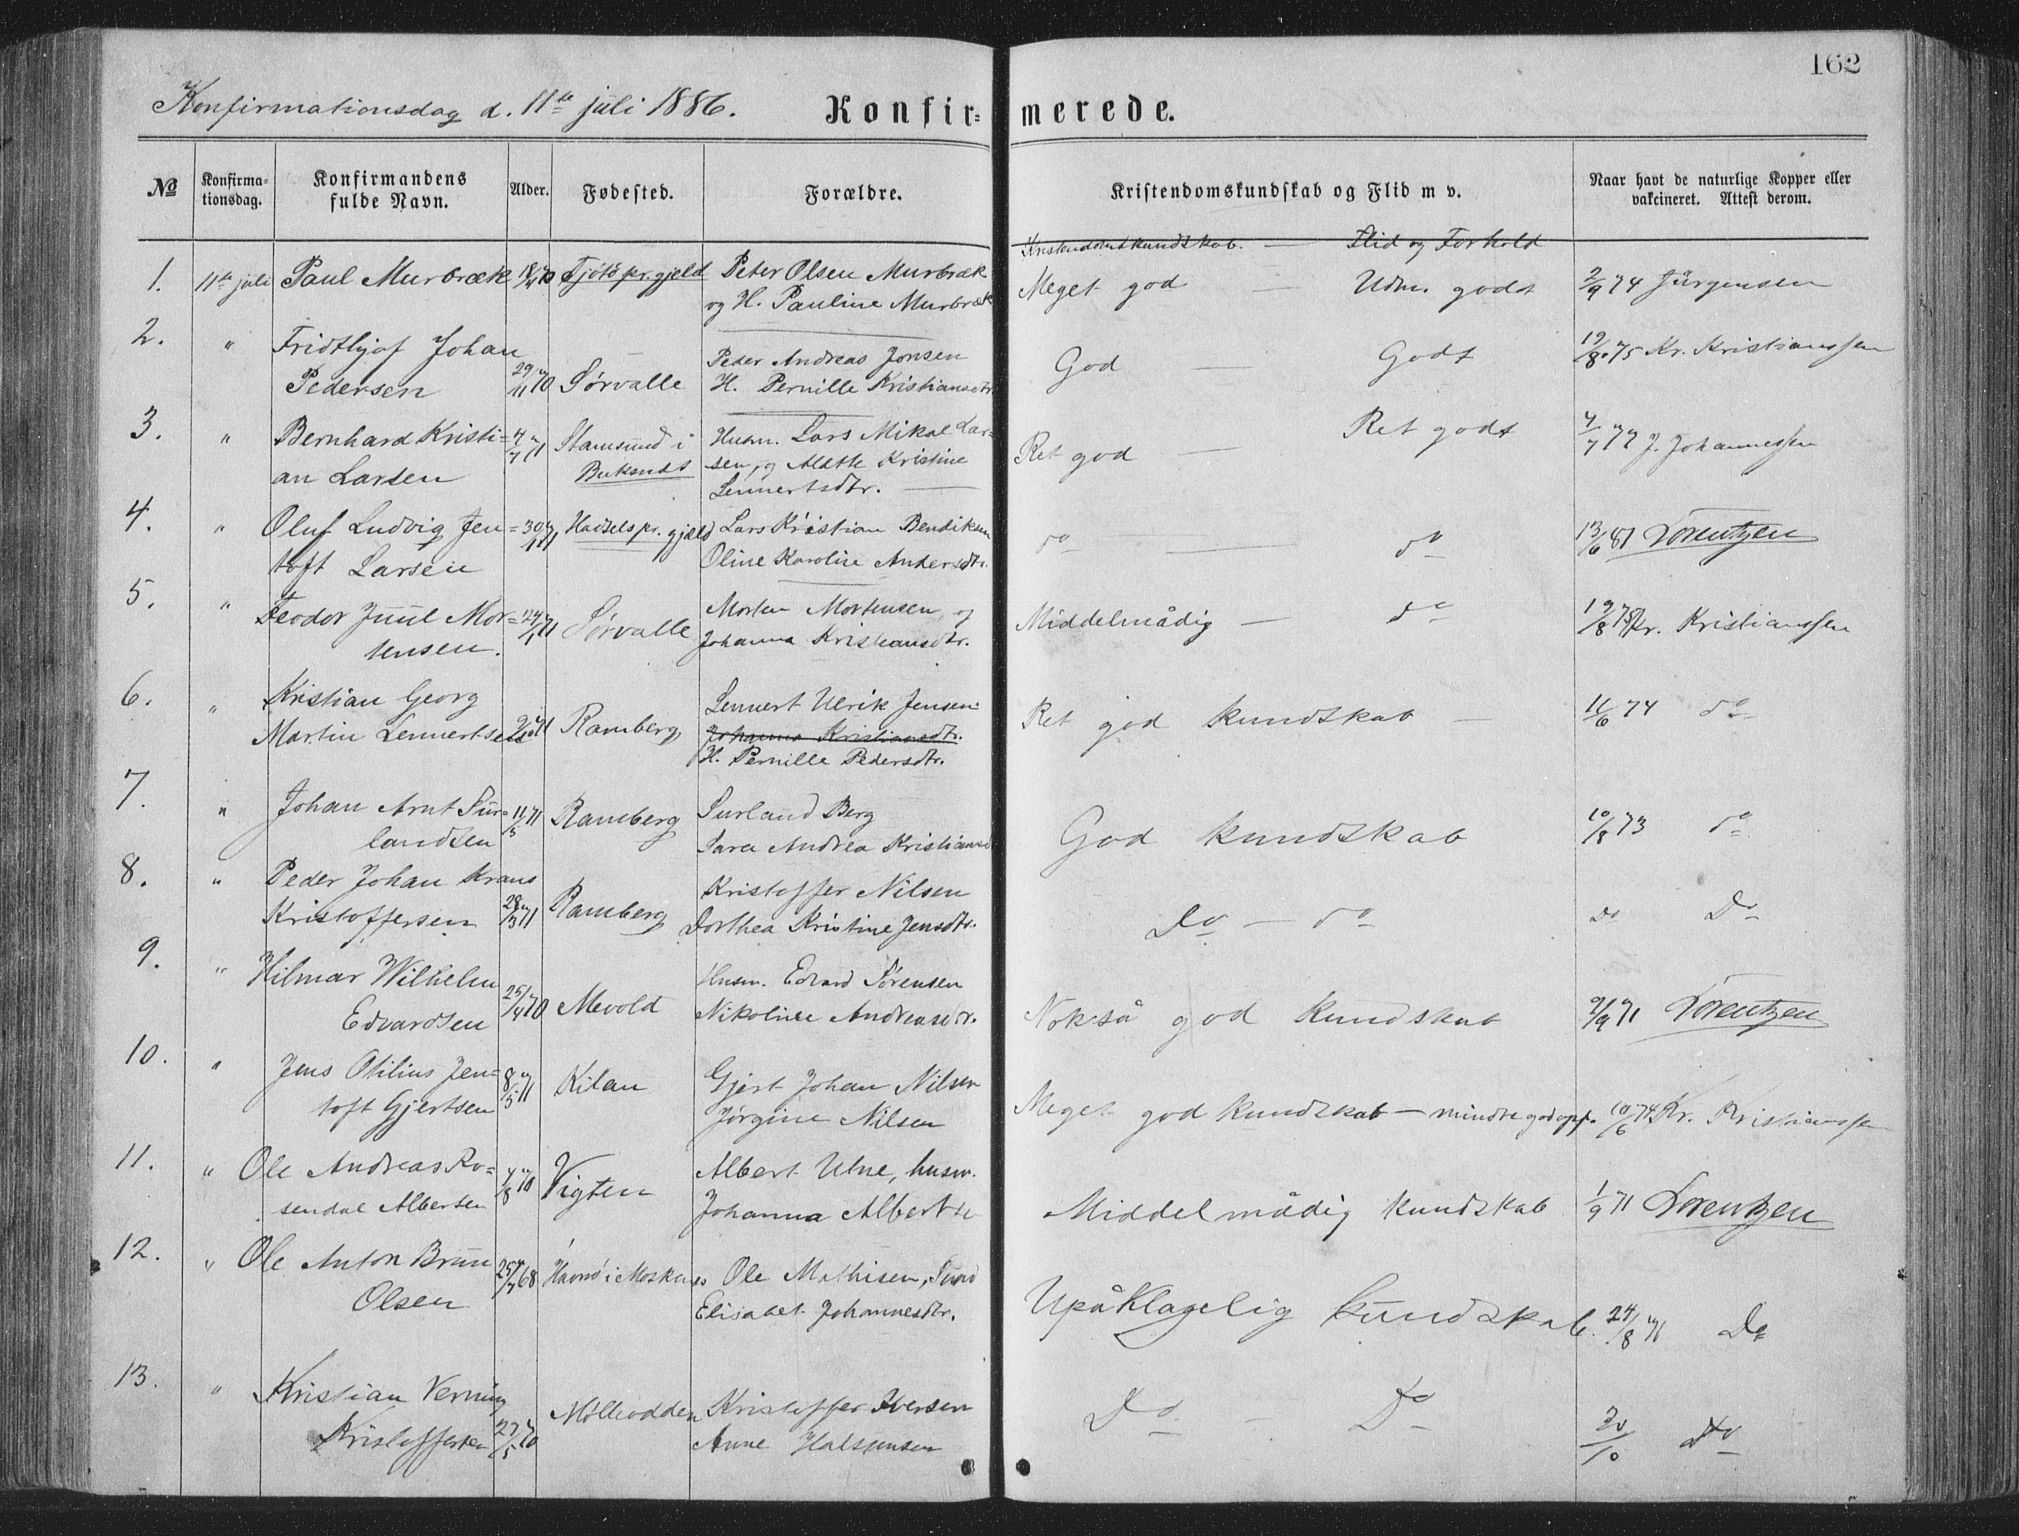 162
Konfirmationsdag d. 11te juli 1886.
Konfir= merede.
No
Konfirma-
tionsdag.
Konfirmandens
fulde Navn.
Alder.
Fødested.
Forældre.
Kristendomskundskab og Flid m v.
Naar havt de naturlige Kopper eller
vakcineret. Attest derom.
Kristendomskundskab. — Flid og Forhold
1. 11te juli Paul Murbræk 18/4 70 Tjøtø pr.gjeld Peter Olsen Murbræk Meget god — Udm. godt 2/9 74 Jürgensen
og H. Pauline Murbræk
2. " Fridthjof Johan Peder Andreas Jonsen God — Godt 19/8 75 Kr. Kristianssen
Pedersen 29/11 70 Sørvalle H. Pernille Kristiansdtr.
3. " Bernhard Kristi= 4/7 71 Stamsund i Husm. Lars Mikal Lar= Ret god — Ret godt 4/7 77 J. Johannessen
an Larsen Buksnes sen, og Aletta Kristine
Lennertsdtr.
4. " Oluf Ludvig Jen= 30/1 71 Hadsels pr. gjeld Lars Kristian Bendiksen do — do 13/6 81 Lorentzen
toft Larsen Oline Karoline Andersdtr.
5. " Teodor Juul Mor= 24/1 71 Sørvalle Morten Mortensen, og Middelmådig — do 19/8 75 Kr. Kristianssen
tensen. Johanna Kristiansdtr.
6. " Kristian Georg Lennert Ulrik Jensen Ret god kundskab — 11/6 74 do
Martin Lennertsen 71 Ramberg Johanna Kristiansdtr.
H. Pernille Pedersdtr.
7. " Johan Arnt Sur= 11/5 71 Ramberg Surland Berg God kundskab 10/8 73 do
landsen Sara Andrea Kristiansd
8. " Peder Johan Krans Kristoffer Nilsen Do — do Do Do
Kristoffersen 28/3 71 Ramberg Dorthea Kristine Jensdtr.
9. " Hilmar Wilhelm Husm. Edvard Sørensen Nokså god kundskab 9/9 71 Lorentzen
Edvardsen 25/4 70 Mevold Nikoline Andreasdtr.
10. " Jens Otilius Jen= 8/5 71 Kilan Gjert Johan Nilsen Meget god kundskab — mindre god opf. 10/6 74 Kr. Kristianssen
toft Gjertsen Jørgine Nilsen
11. " Ole Andreas Ro= 4/8 70 Vigten Albert Ulne, husm. Middelmådig kundskab 1/9 71 Lorentzen
sendal Albertsen Johanna Albertse
12. " Ole Anton Bruun 25/7 68 Havnø i Moskenes Ole Mathisen, Sund Upåklagelig kundskab. 24/8 71 Do
Olsen Elisabet Johannesdtr.
13. " Kristian Verning Mølleodden Kristoffer Iversen Do — Do 30/10 Do
Kristoffersen 27/5 70 Anne Halsjensen